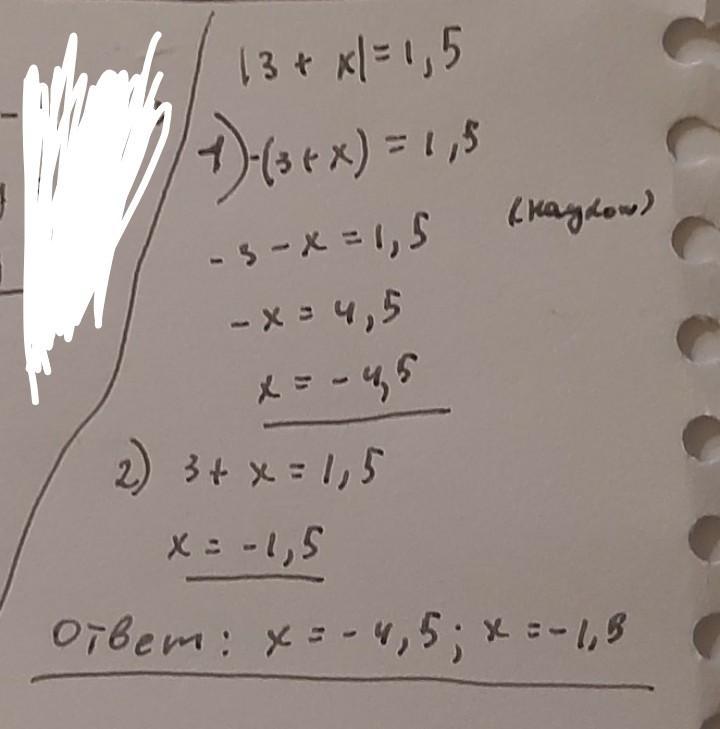 |3 + x| = 1,5
1) -(3 + x) = 1,5
-3 - x = 1,5
-x = 4,5
x = -4,5
2) 3 + x = 1,5
x = -1,5
Ответ: x = -4,5; x = -1,5